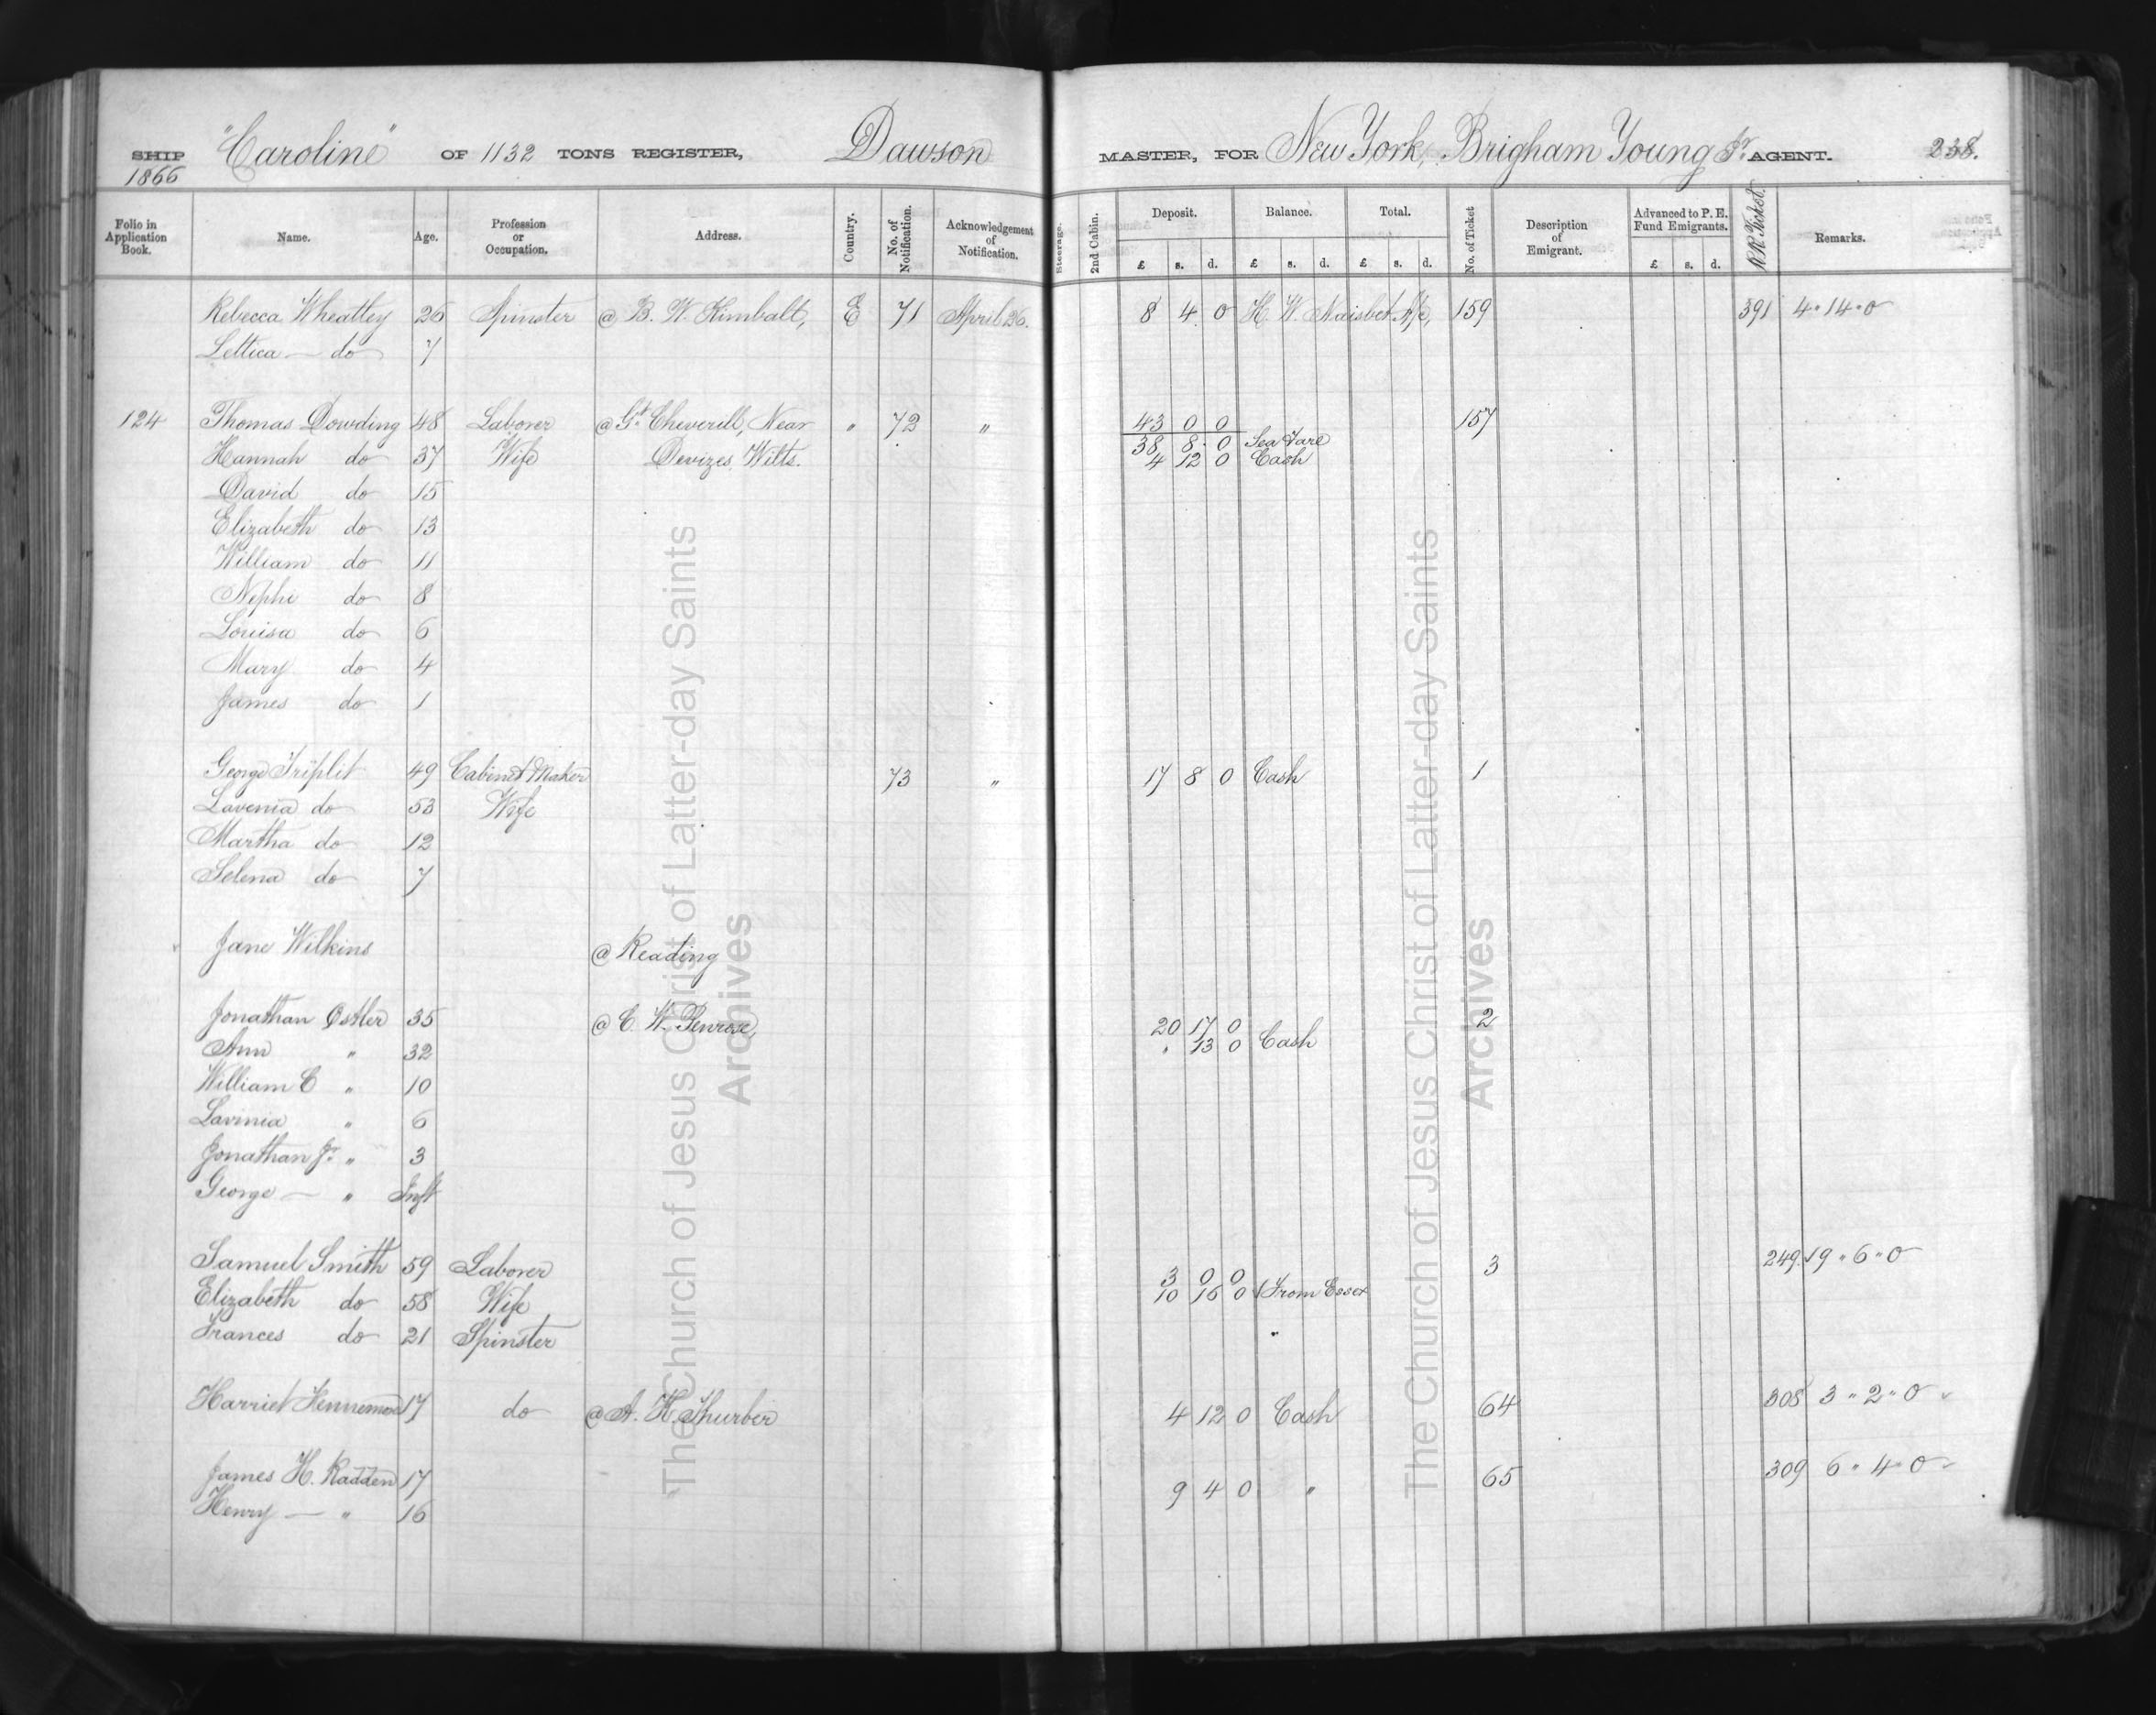 SHIP "Caroline" OF 1132 TONS REGISTER, Dawson MASTER, FOR New York, Brigham Young Jr. AGENT. 238.
1866
Folio in Application Book. Name. Age. Profession or Occupation. Address. Country. No. of Notification. Acknowledgement of Notification. Steerage. 2nd Cabin. Deposit. Balance. Total. No. of Ticket Description of Emigrant. Advanced to P. E. Fund Emigrants. R R Ticket Remarks.
£ s. d. £ s. d. £ s. d. £ s. d.
Rebecca Wheatley 26 Spinster @ B. W. Kimball, E 71 April 26. 8 4 0 H. W. Naisbet A/c, 159 391 4 " 14 " 0
Lettica — do 7
124 Thomas Dowding 48 Laborer @ Gt. Cheverill, Near " 72 " 43 0 0 157
38 8 0 Sea Fare
Hannah do 37 Wife Devizes, Wilts. 4 12 0 Cash
David do 15
Elizabeth do 13
William do 11
Nephi do 8
Louisa do 6
Mary do 4
James do 1
George Triplit 49 Cabinet Maker 73 " 17 8 0 Cash 1
Lavenia do 53 Wife
Martha do 12
Selena do 7
Jane Wilkins @ Reading
Jonathan Ostler 35 @ C. W. Penrose, 20 17 0 2
Ann " 32 " 13 0 Cash
William C " 10
Lavinia " 6
Jonathan Jr. " 3
George — " Inft
Samuel Smith 59 Laborer 3 0 0 3 249 19 " 6 " 0
Elizabeth do 58 Wife 10 16 0 (From Essex
Frances do 21 Spinster
Harriet Kennemore 17 do @ A. K. Thurber 4 12 0 Cash 64 308 3 " 2 " 0
James H. Radden 17 9 4 0 " 65 309 6 " 4 " 0
Henry — " 16
The Church of Jesus Christ of Latter-day Saints
Archives
The Church of Jesus Christ of Latter-day Saints
Archives